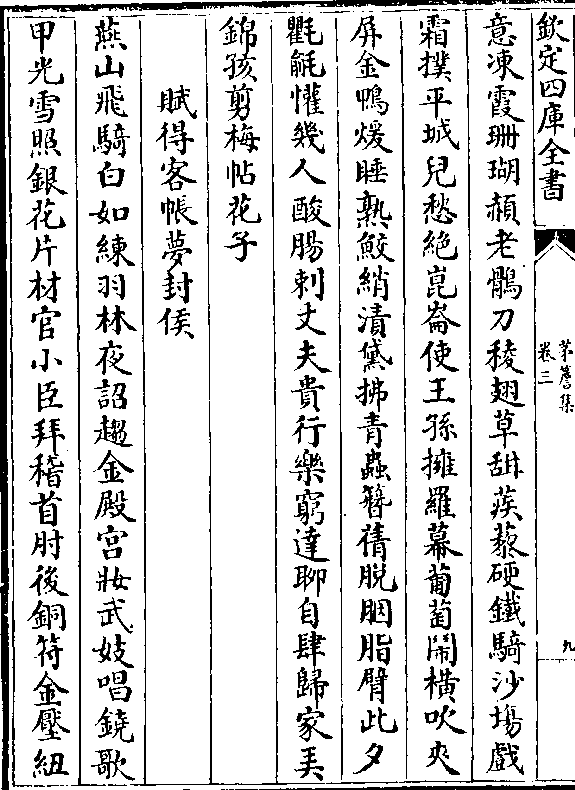 欽定四庫全書
茅簷集
卷三
九
意凍霞珊瑚頳老鶻刀稜翅草甜蒺藜硬鐵騎沙塲戲
霜撲平城兒愁絕崑崙使王孫擁羅幕葡萄鬧橫吹夾
屏金鴨煖睡熟鮫綃漬黛拂青蟲簪蒨脱胭脂臂此夕
氍毹懽幾人酸腸刺丈夫貴行樂窮達聊自肆歸家美
錦孩剪梅帖花子
賦得客帳夢封侯
燕山飛騎白如練羽林夜詔趨金殿宫妝武妓唱鐃歌
甲光雪照銀花片材官小臣拜稽首肘後銅符金壓紐